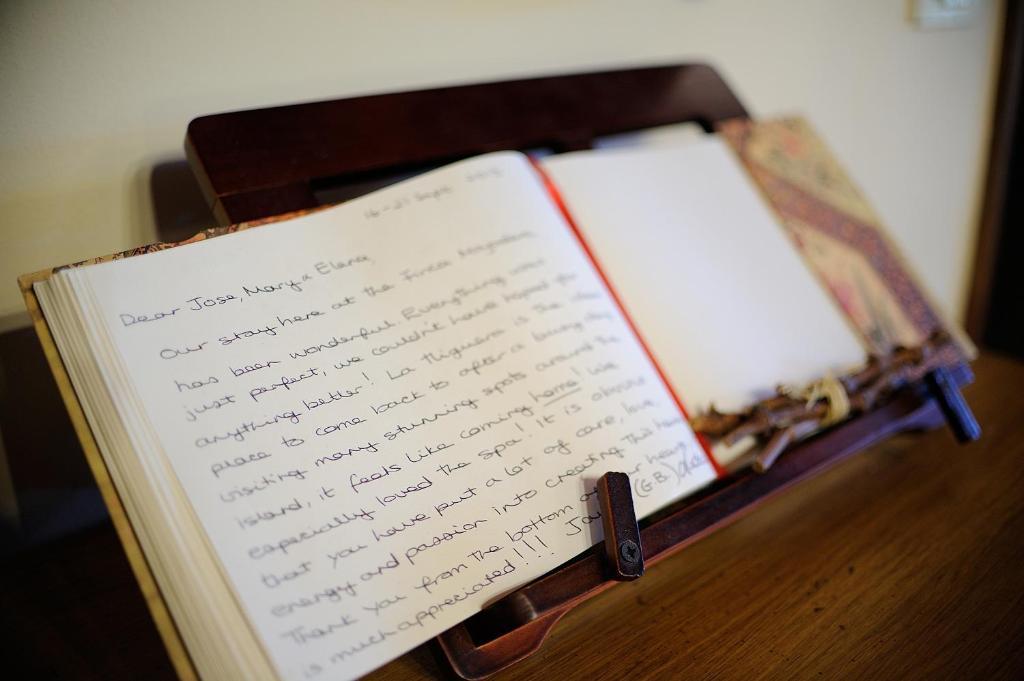 16-21 Sept
Dear Jose, Mary a Elena,
Our stay here at the Finca
has been wonderful. Everything was
just perfect, we couldn't have hoped for
anything better! La Higuera is the ideal
place to come back to after a long day
visiting many stunning spots around the
island, it feels like coming home! We
especially loved the spa! It is obvious
that you have put a lot of care, love,
energy and passion into creating this
Thank you from the bottom of our hearts
is much appreciated!!! (G.B.)